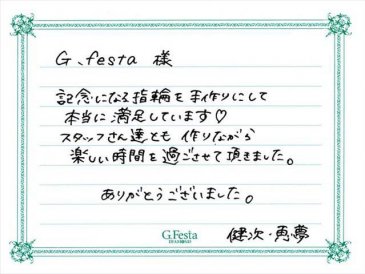 G.festa 様
記念になる指輪を手作りにして
本当に満足しています♡
スタッフさん達とも 作りながら
楽しい時間を過ごさせて頂きました。
ありがとうございました。
G.Festa
DIAMOND
健次・再夢